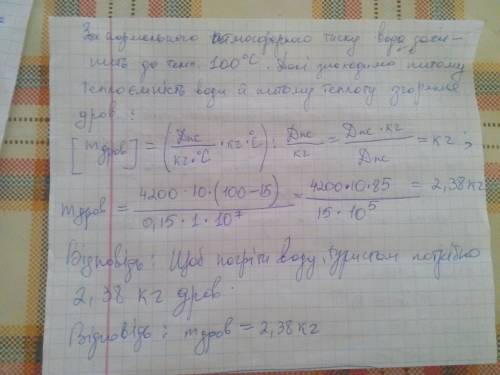 За нормального атмосферного тиску вода заки-
пить до темп. 100°C. Далі знаходимо питому
теплоємність води й питому теплоту згорання
дров:
[mдров] = (Дж/кг·°C · кг·°C) : Дж/кг = Дж·кг/Дж = кг;
mдров = 4200·10·(100−15)/0,15·1·10⁷ = 4200·10·85/15·10⁵ = 2,38кг
Відповідь: Щоб погріти воду, туристам потрібно
2,38 кг дров.
Відповідь: mдров = 2,38кг